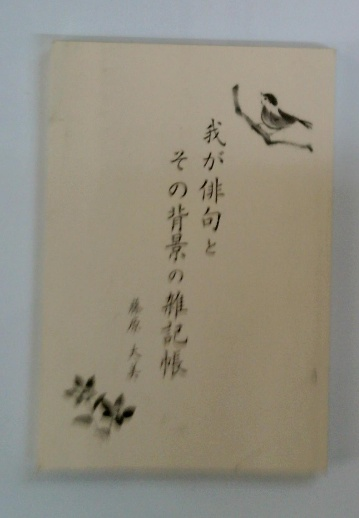 我が俳句と
その背景の雑記帳
藤原 大美